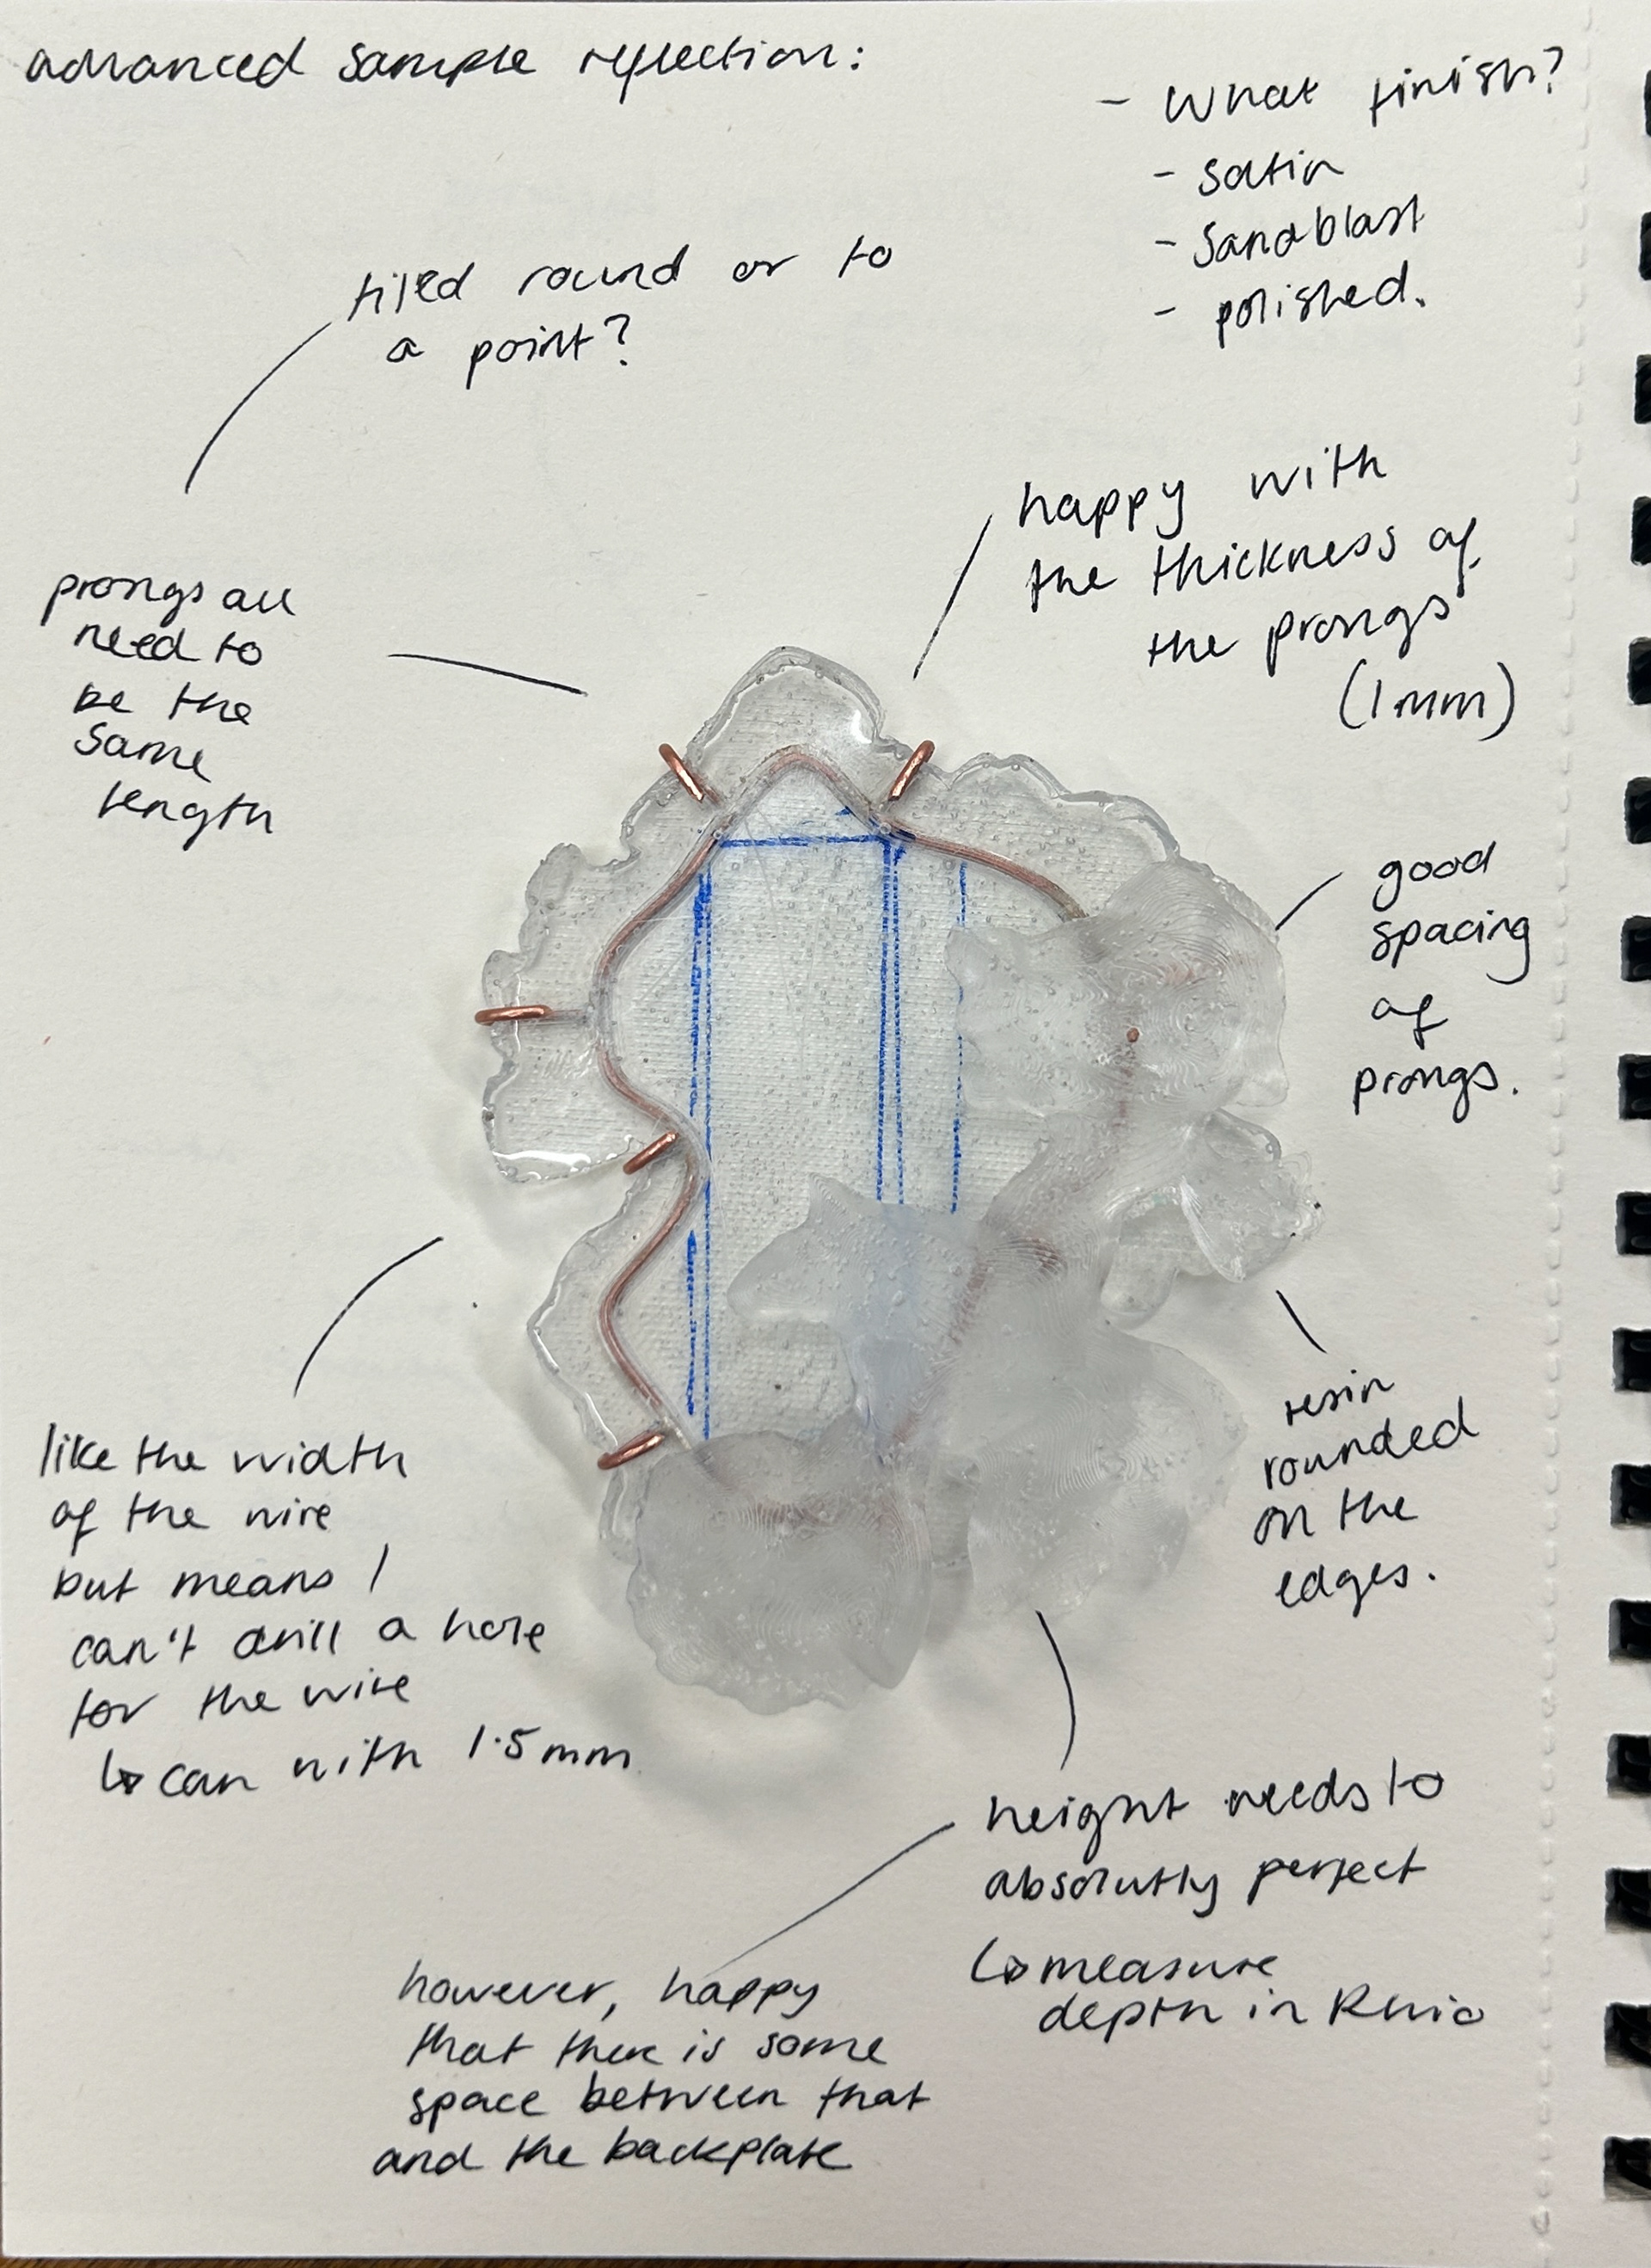 advanced sample reflection:
- What finish?
- satin
- Sandblast
- polished.
filed round or to
a point?
happy with
the thickness of
the prongs
(1mm)
prongs all
need to
be the
same
length
good
spacing
of
prongs.
resin
rounded
on the
edges.
like the width
of the wire
but means I
can't drill a hole
for the wire
↳ can with 1.5mm
height needs to
absolutly perfect
↳ measure
depth in Rhio
however, happy
that there is some
space between that
and the backplate